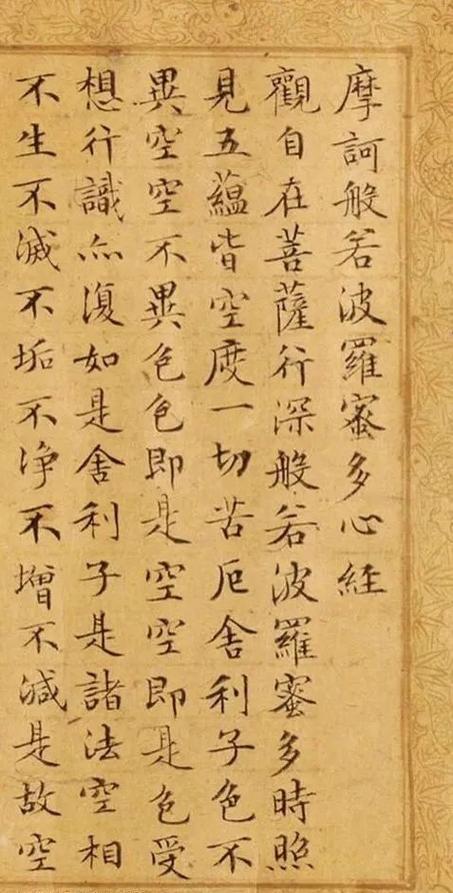 摩訶般若波羅蜜多心經
觀自在菩薩行深般若波羅蜜多時照
見五蘊皆空度一切苦厄舍利子色不
異空空不異色色即是空空即是色受
想行識亦復如是舍利子是諸法空相
不生不滅不垢不淨不增不減是故空